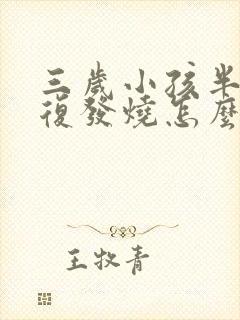 三歲小孩半
復發燒怎麼
王牧青